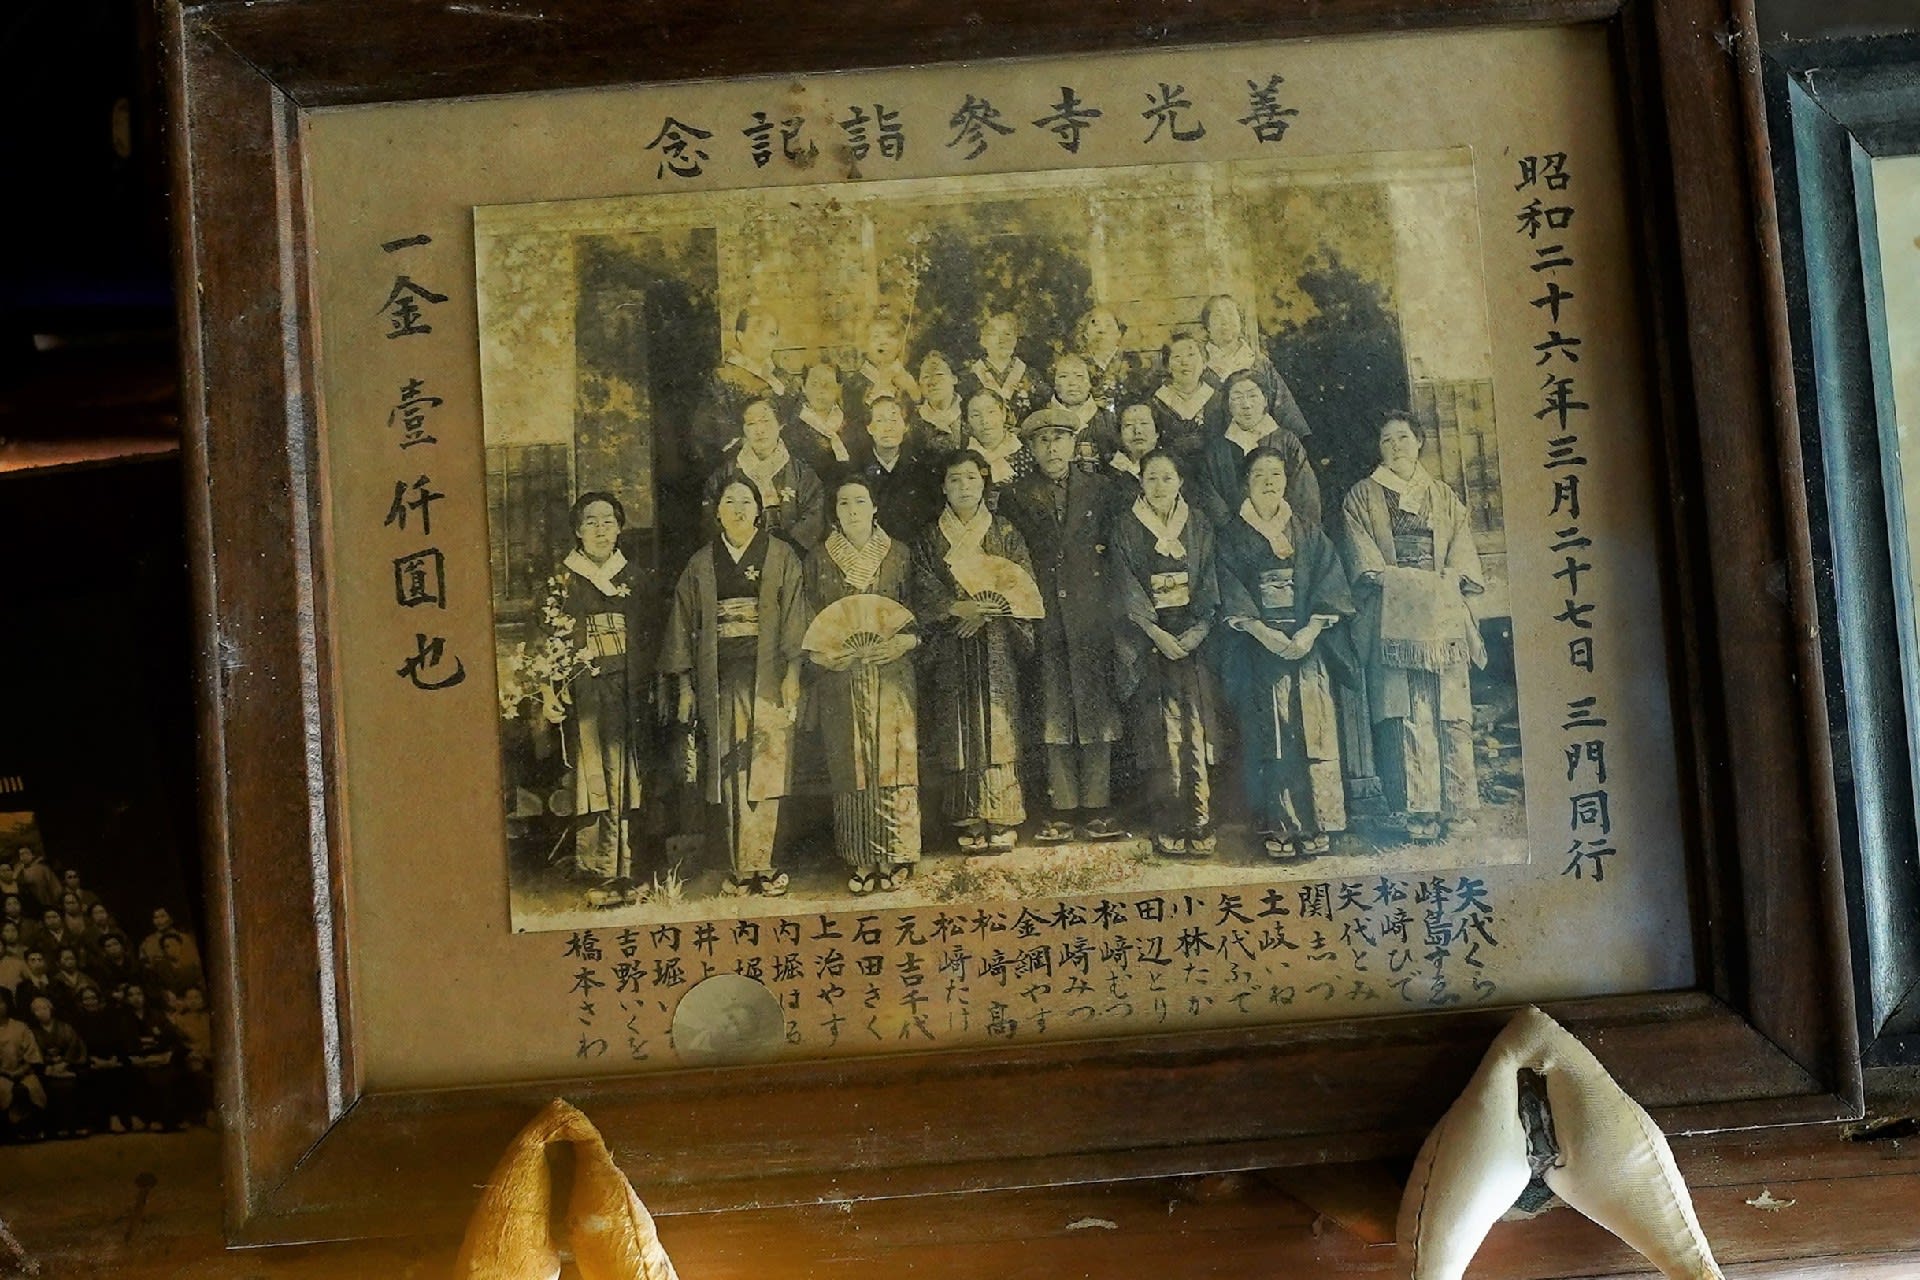 善光寺參詣記念
昭和二十六年三月二十七日 三門同行
矢代くら
峰島すゑ
松﨑ひで
矢代とみ
関志づ
土岐いね
矢代ふで
小林たか
田辺とり
松﨑むつ
松﨑みつ
金綱やす
松﨑高
松﨑たけ
元吉千代
石田きく
上治やす
内堀はる
内堀
井上
内堀
吉野いくを
橋本さわ
一金壹仟圓也